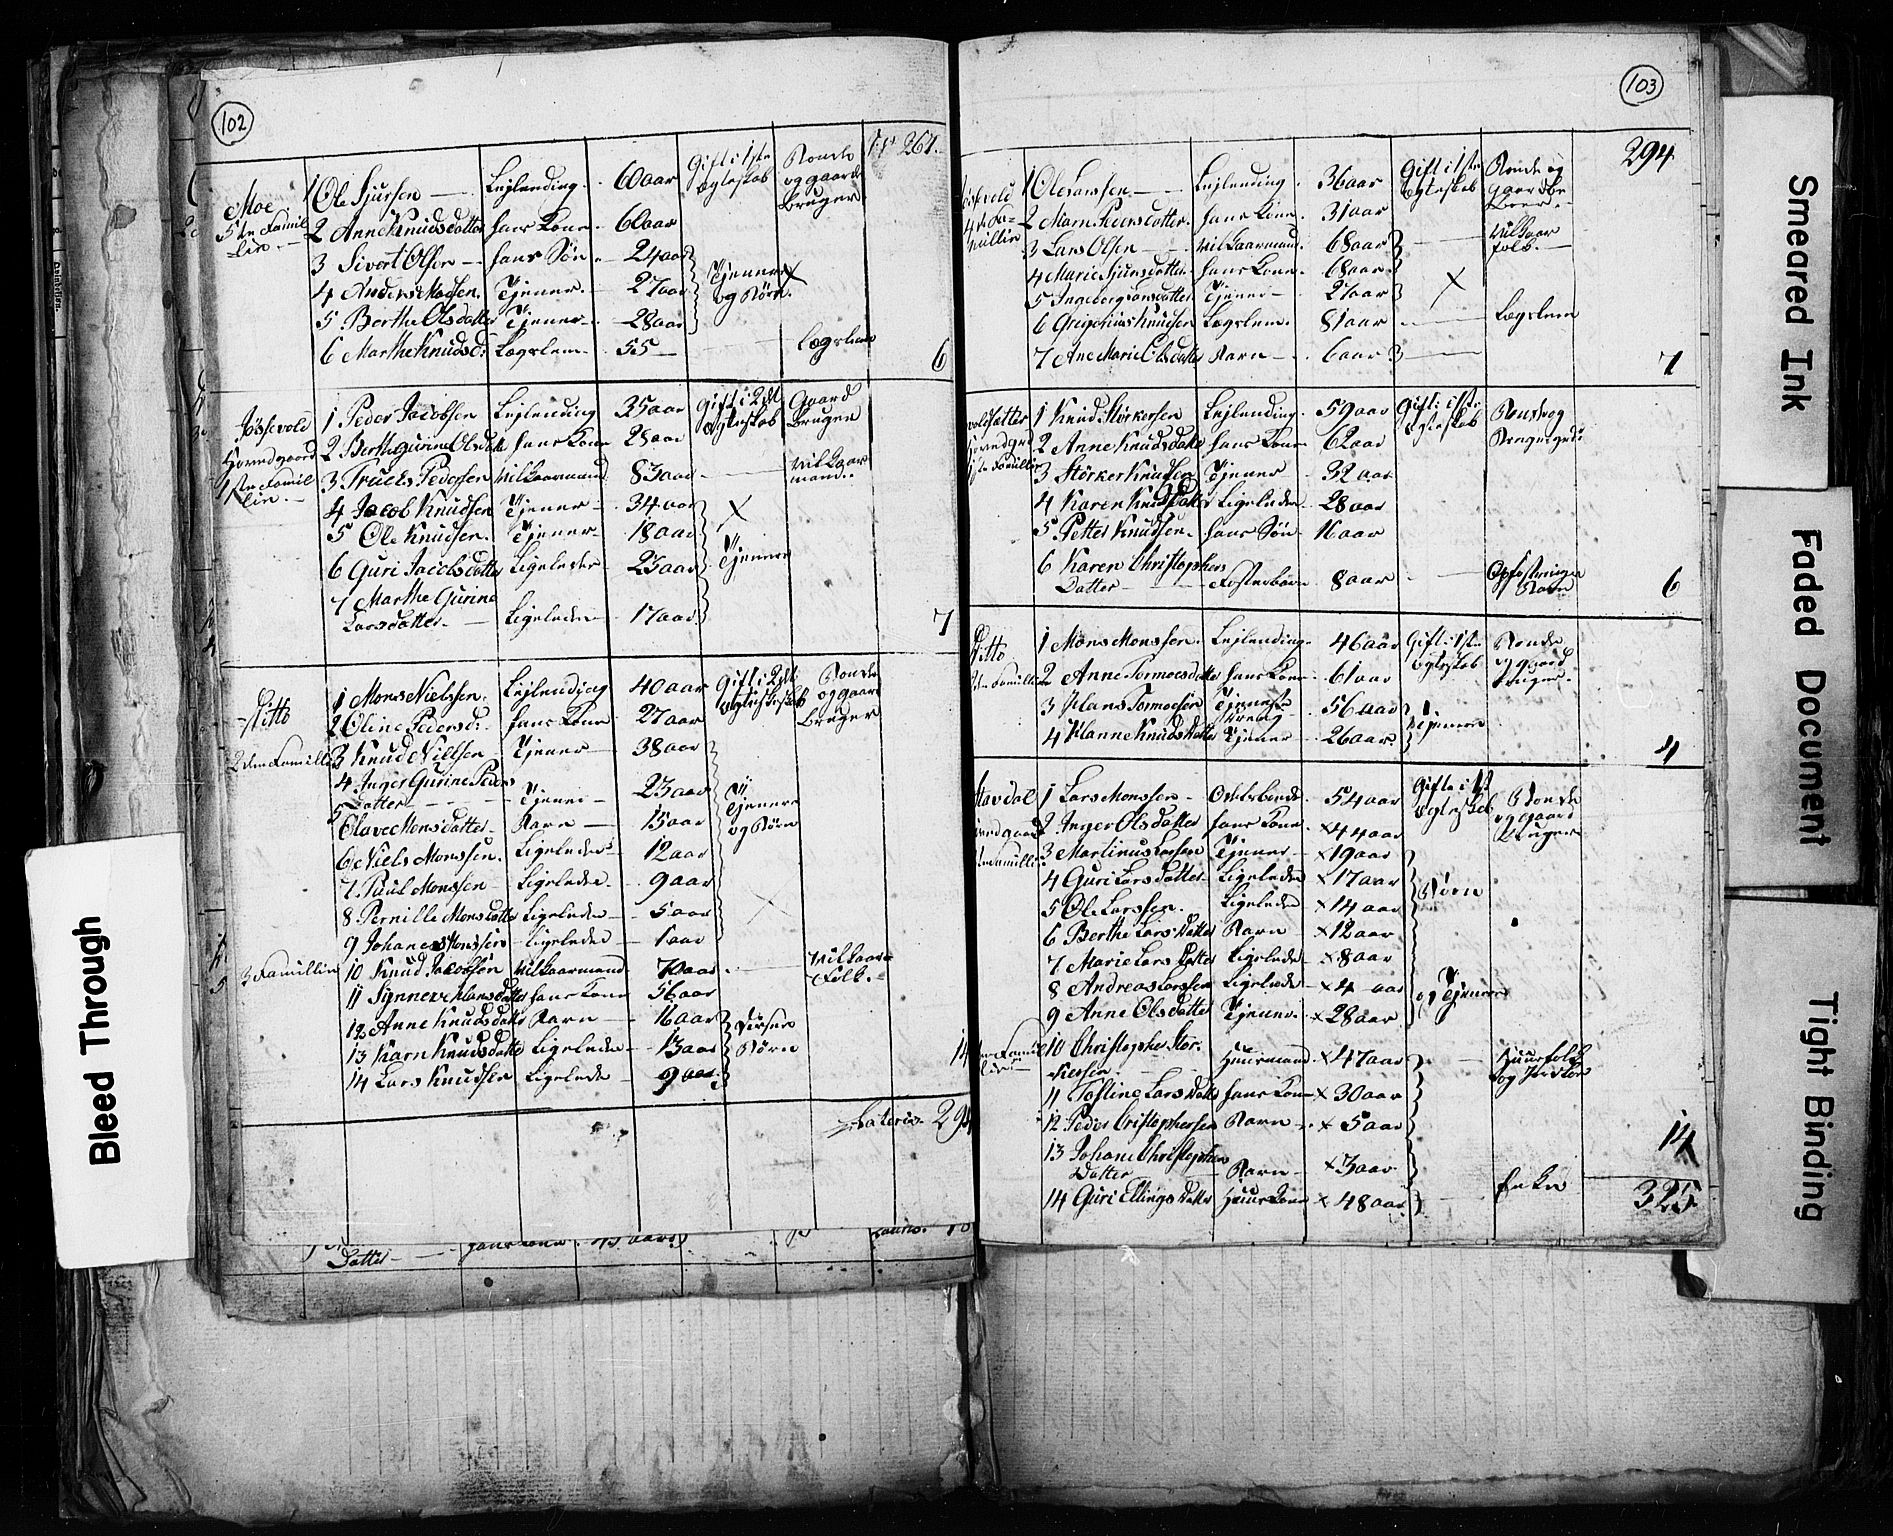 102
Tr. 267.
Moe
5te Famil
lie
1 Ole Sjursen — Lejlending 60 aar Gift i 1ste Ægteskab Bonde og gaard Bruger
2 Anne Knudsdatter hans Kone 60 aar
3 Sivert Olsen — hans Søn 24 aar
4 Anders Madsen. Tjener 27 aar Tjenner og Børn.
5 Berthe Olsdatter Tjener 28 aar
6 Marthe Knudsd: Lægslem 55 — Lægslem
6
Jøssevold
Hovedgaard
1ste Famil
lie
1 Peder Jacobsen Lejlending 35 aar Gift i 2det Ægteskab Gaard Bruger
2 Berthe gurine Olsdatter hans Kone 28 aar
3 Truels Pedersen Vilkaarmand 83 aar Vilkaar mand.
4 Jacob Knudsen Tjener 34 aar
5 Ole Knudsen. Tjener 18 aar
6 Guri Jacobsdatter Ligeledes 25 aar Tjenere
7 Marthe Gurine
Larsdatter — Ligeledes 17 aar
7
Ditto
2den Famillie
1 Mons Nielssen. Lejlending 40 aar Gift i 2det Ægteskab Bonde og gaard Bruger
2 Oline Pedersd: hans Kone 27 aar
3 Knud Nielssen Tjener 38 aar
4 Inger Gurine Peders
Datter — Tjener 23 aar Tjenere og Børn
5 Olave Monsdatter Barn 15 aar
6 Niels Monssen. Ligeledes 12 aar
7 Paul Monssen Ligeledes 9 aar
8 Pernille Monsdatter Ligeledes 5 aar
9 Johanes Monssen Ligeledes 1 aar
3 Famillie
10 Knud Jacobsen Vilkaarmand 70 aar Vilkaars Folk.
11 Synneve Hansdatter hans Kone 56 aar
12 Anne Knudsdatter Barn 16 aar Disses Børn
13 Karn Knudsdatter Ligeledes 13 aar
14 Lars Knudsen Ligeledes 9 aar
14
Lateris 294
Datter — hans Kone
103
294
Jøssevold
4de Fa-
millie
1 Ole Larssen — Lejlending 36 aar Gift i 1ste Ægteskab Bonde og gaardbr
2 Marn Pedersdatter. hans Kone 31 aar
3 Lars Olsen Vilkaarmand 68 aar Vilkaar folk.
4 Marie Sjursdatter hans Kone 68 aar
5 Ingeborg Tjener 27 aar
6 Grigorius Knudsen Lægslem. 81 aar Lægslem
7 Ane Marie Olsdatter Barn 6 aar
7
1ste Famillie
1 Knud Størkersen Lejlending 59 aar Gift i 1ste Ægteskab
2 Anne Knudsdatter hans Kone 62 aar
3 Størker Knudsen Tjener 32 aar
4 Karen Knudsdatter Ligeledes 28 aar
5 Petter Knudsen hans Søn 16 aar
6 Karen Christophers
Datter — Fosterbarn 8 aar Opfostrings Barn
6
Ditto
2den Famillie
1 Mons Monssen Lejlending 46 aar Gift i 1ste Ægteskab Bonde og gaard Bruger
2 Anne Tormoesdatter hans Kone 61 aar
3 Hans Tormoesen Tjeneste Dreng 56 aar Tjenere
4 Hanne Knudsdatter Tjener 26 aar
4
Stavdal
1 Lars Monssen 54 aar Gifte i 1st Ægteskab Bonde og gaard Bruger
2 Inger Olsdatter hans Kone × 44 aar
3 Martinus Larsen Tjener × 19 aar
4 Guri Larsdatter Ligeledes × 17 aar Børn
5 Ole Larssen. Ligeledes × 14 aar
6 Berthe Larsdatter Barn × 12 aar
7 Marie Larsdatter Ligeledes × 8 aar
8 Andreas Larssen Ligeledes × 4 aar og Tjenere
9 Anne Olsdatter Tjener × 28 aar
10 Christopher Stor-
kersen. Huusmand × 47 aar Huusfolk
11 Larsdatter hans Kone × 30 aar
12 Peder Cristophersen Barn × 5 aar
13 Johane Christophers
Datter Barn × 3 aar
14 Guri Ellingsdatter Huuskone × 48 aar Enke
14
325
Bleed Through
Smeared Ink
Faded Document
Tight Binding